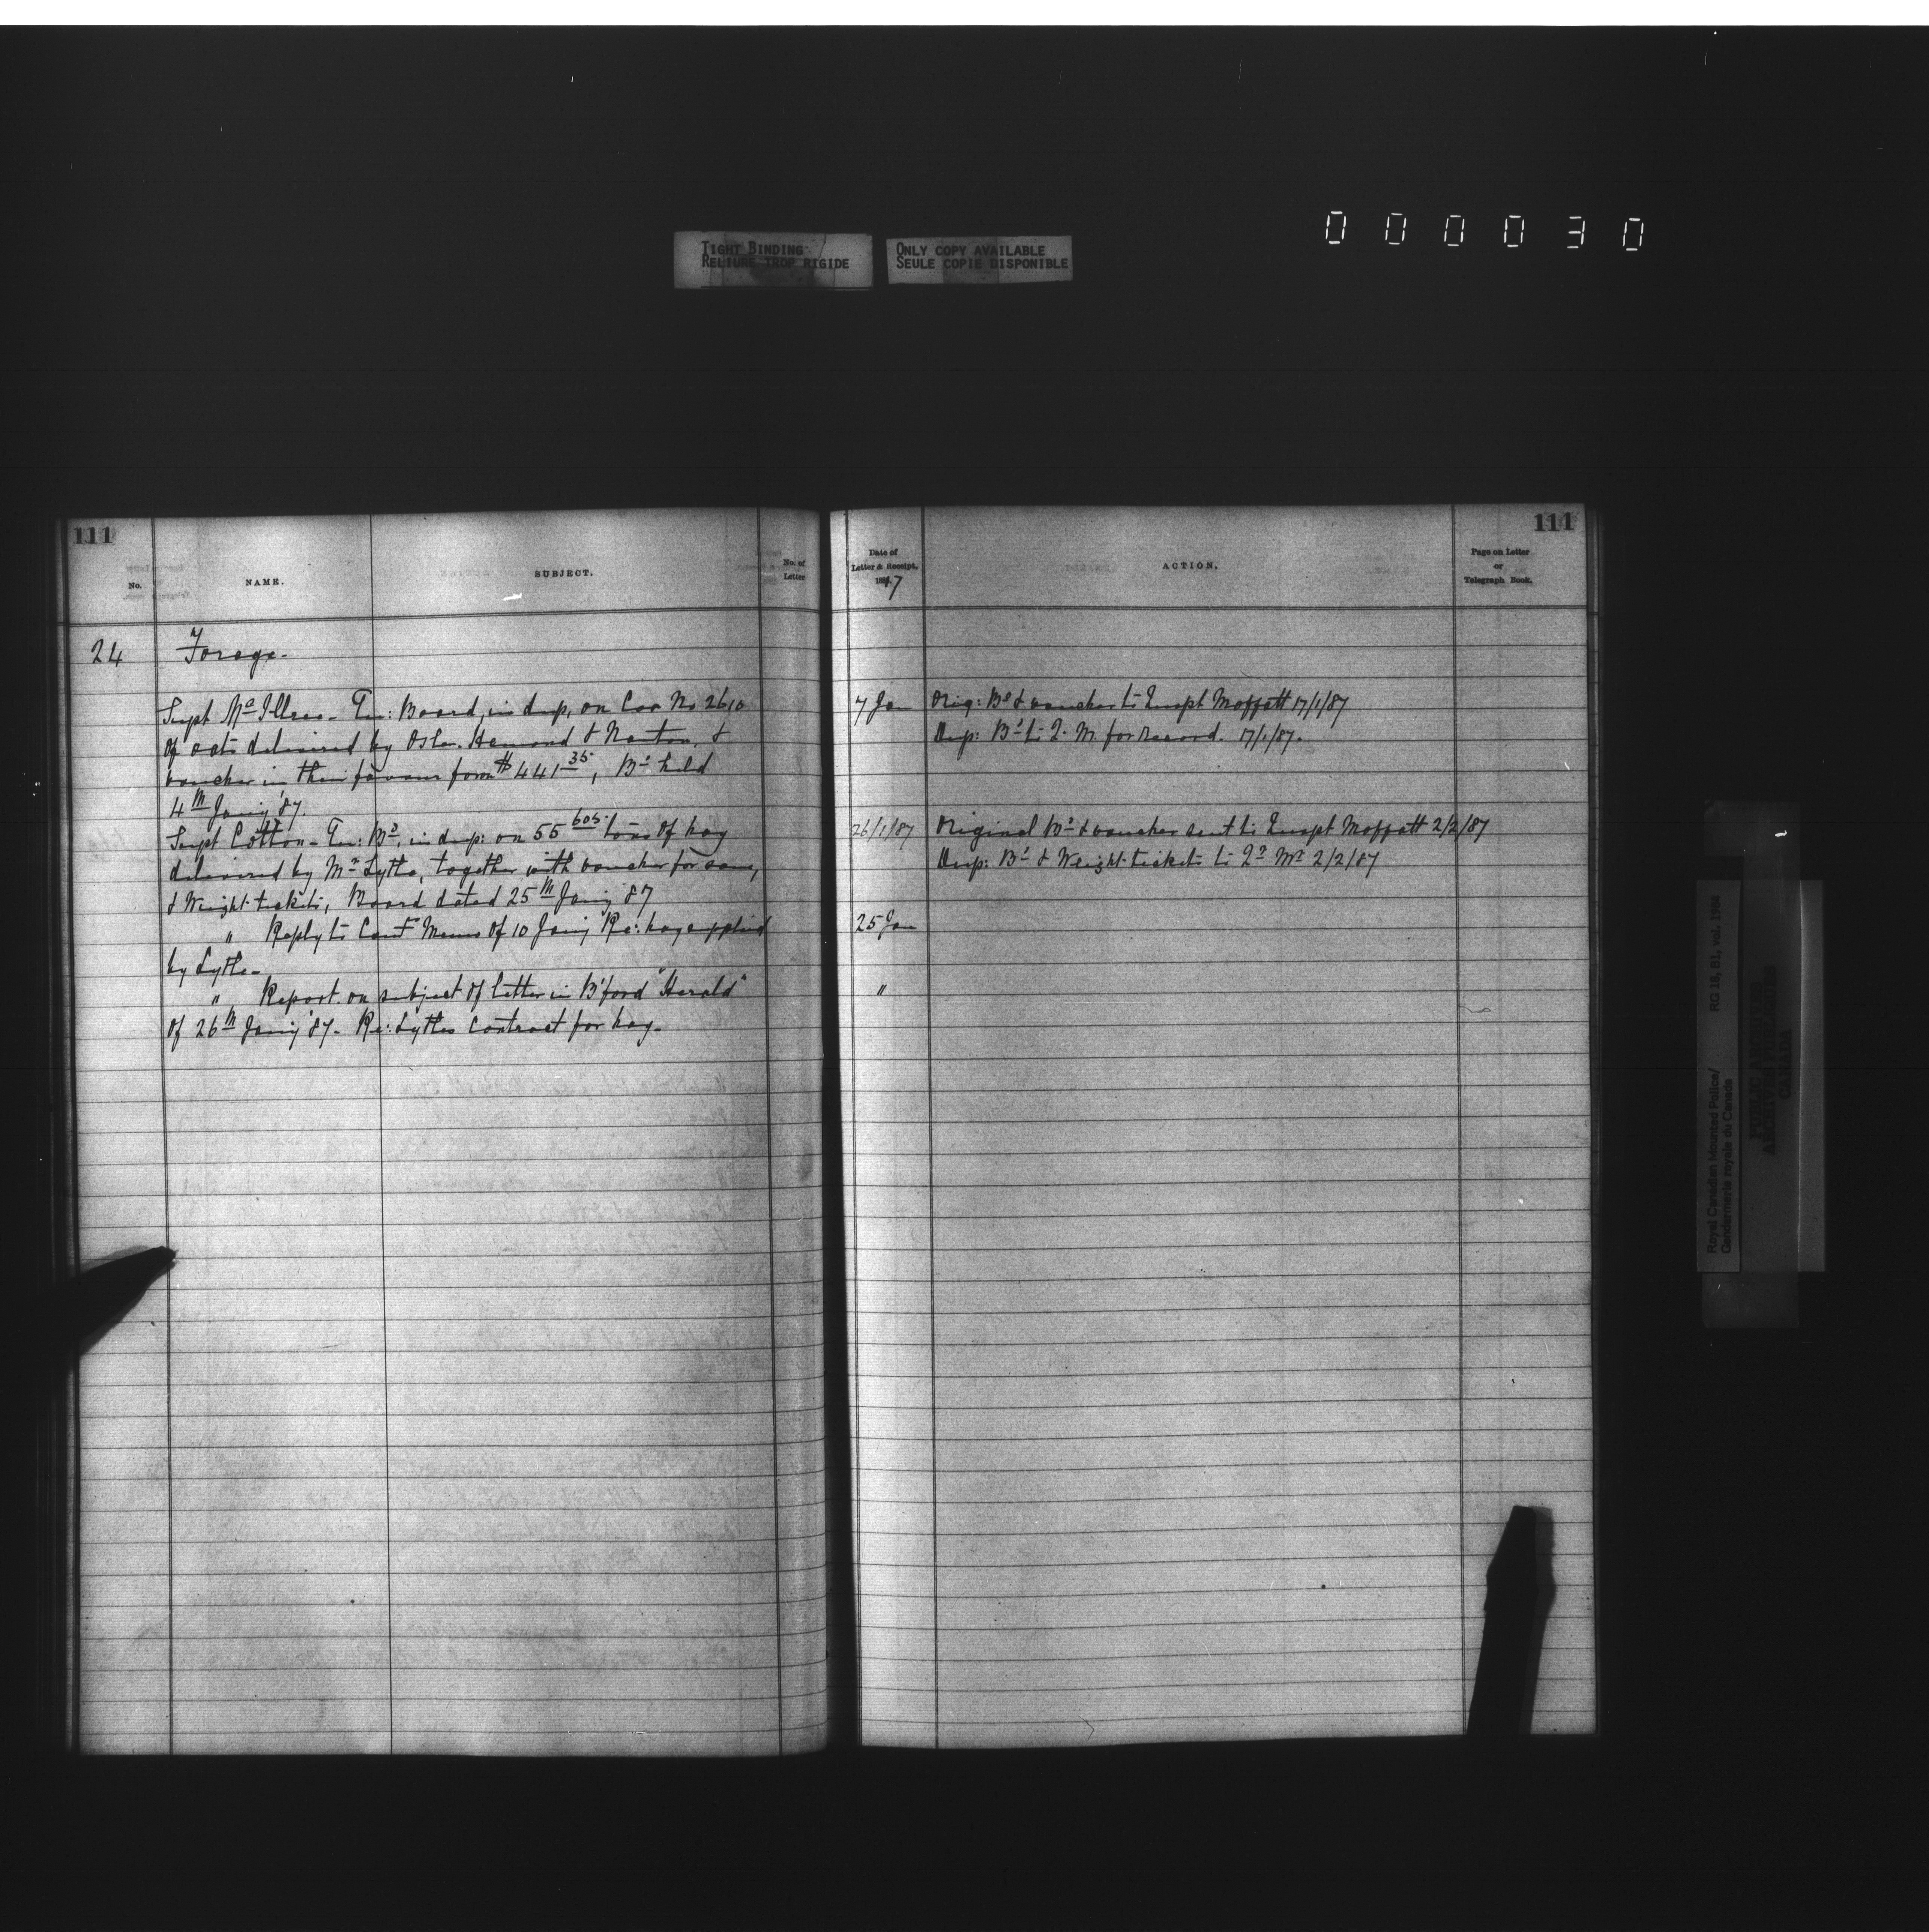 000030
TIGHT BINDING
RELIURE TROP RIGIDE
ONLY COPY AVAILABLE
SEULE COPIE DISPONIBLE
111
No.
NAME.
SUBJECT.
No. of
Letter
24 Forage-
Supt McIllree - Boord, in dup, on Car No 2610
of oats delivered by Osler. Hamond & Nanton, &
voucher in their favour for $441 35, Bd held
4th Jany '87.
Supt Cotton - Bd, in dup: on 55 605 tons of hay
delivered by Mr Lytle, together with voucher for same,
& Weight-tickets, Board dated 25th Jany '87
" Reply to Comr Memo of 10 Jany Re: hay supplied
by Lytle -
" Report on subject of letter in B'ford "Herald"
of 26th Jany '87 - Re: Lytles Contract for hay.
111
Date of
Letter & Receipt,
1887
ACTION.
Page on Letter
or
Telegraph Book.
7 Jan Orig: Bd & voucher to Inspt Moffatt 17/1/87
Dup: Bd to Q. M. for record. 17/1/87.
26/1/87 Original Bd & voucher sent to Inspt Moffatt 2/2/87
Dup: Bd & Weight-tickets to Qr Mr 2/2/87
25 Jan
"
Royal Canadian Mounted Police/
Gendarmerie royale du Canada
RG 18, B1, vol. 1984
PUBLIC ARCHIVES
ARCHIVES PUBLIQUES
CANADA